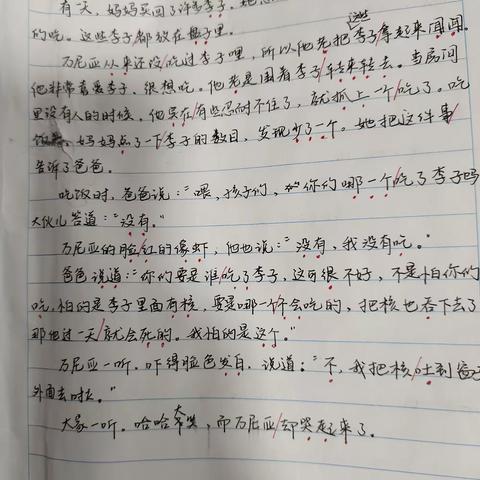 有一天，妈妈买回了许多李子，她
的吃。这些李子都放在盘子里。
万尼亚从来还没吃过李子哩，所以他先把这些李子拿起来闻闻。
他非常喜爱李子，很想吃。他老是围着李子转来转去。当房间
里没有人的时候，他实在有些忍耐不住了，就抓上一个吃了。吃
饭，妈妈点了一下李子的数目，发现少了一个。她把这件事
告诉了爸爸。
吃饭时，爸爸说："喂，孩子们，你们哪一个吃了李子吗
大伙儿答道："没有。"
万尼亚的脸红的像虾，他也说："没有，我没有吃。"
爸爸说道："你们要是谁吃了李子，这可很不好，不是怕你们
吃，怕的是李子里面有核，要是哪一个不会吃的，把核也吞下去了
那他过一天就会死的。我怕的是这个。"
万尼亚一听，吓得脸色发白，说道："不，我把核吐到窗
外面去啦。"
大家一听，哈哈大笑，而万尼亚却哭起来了。